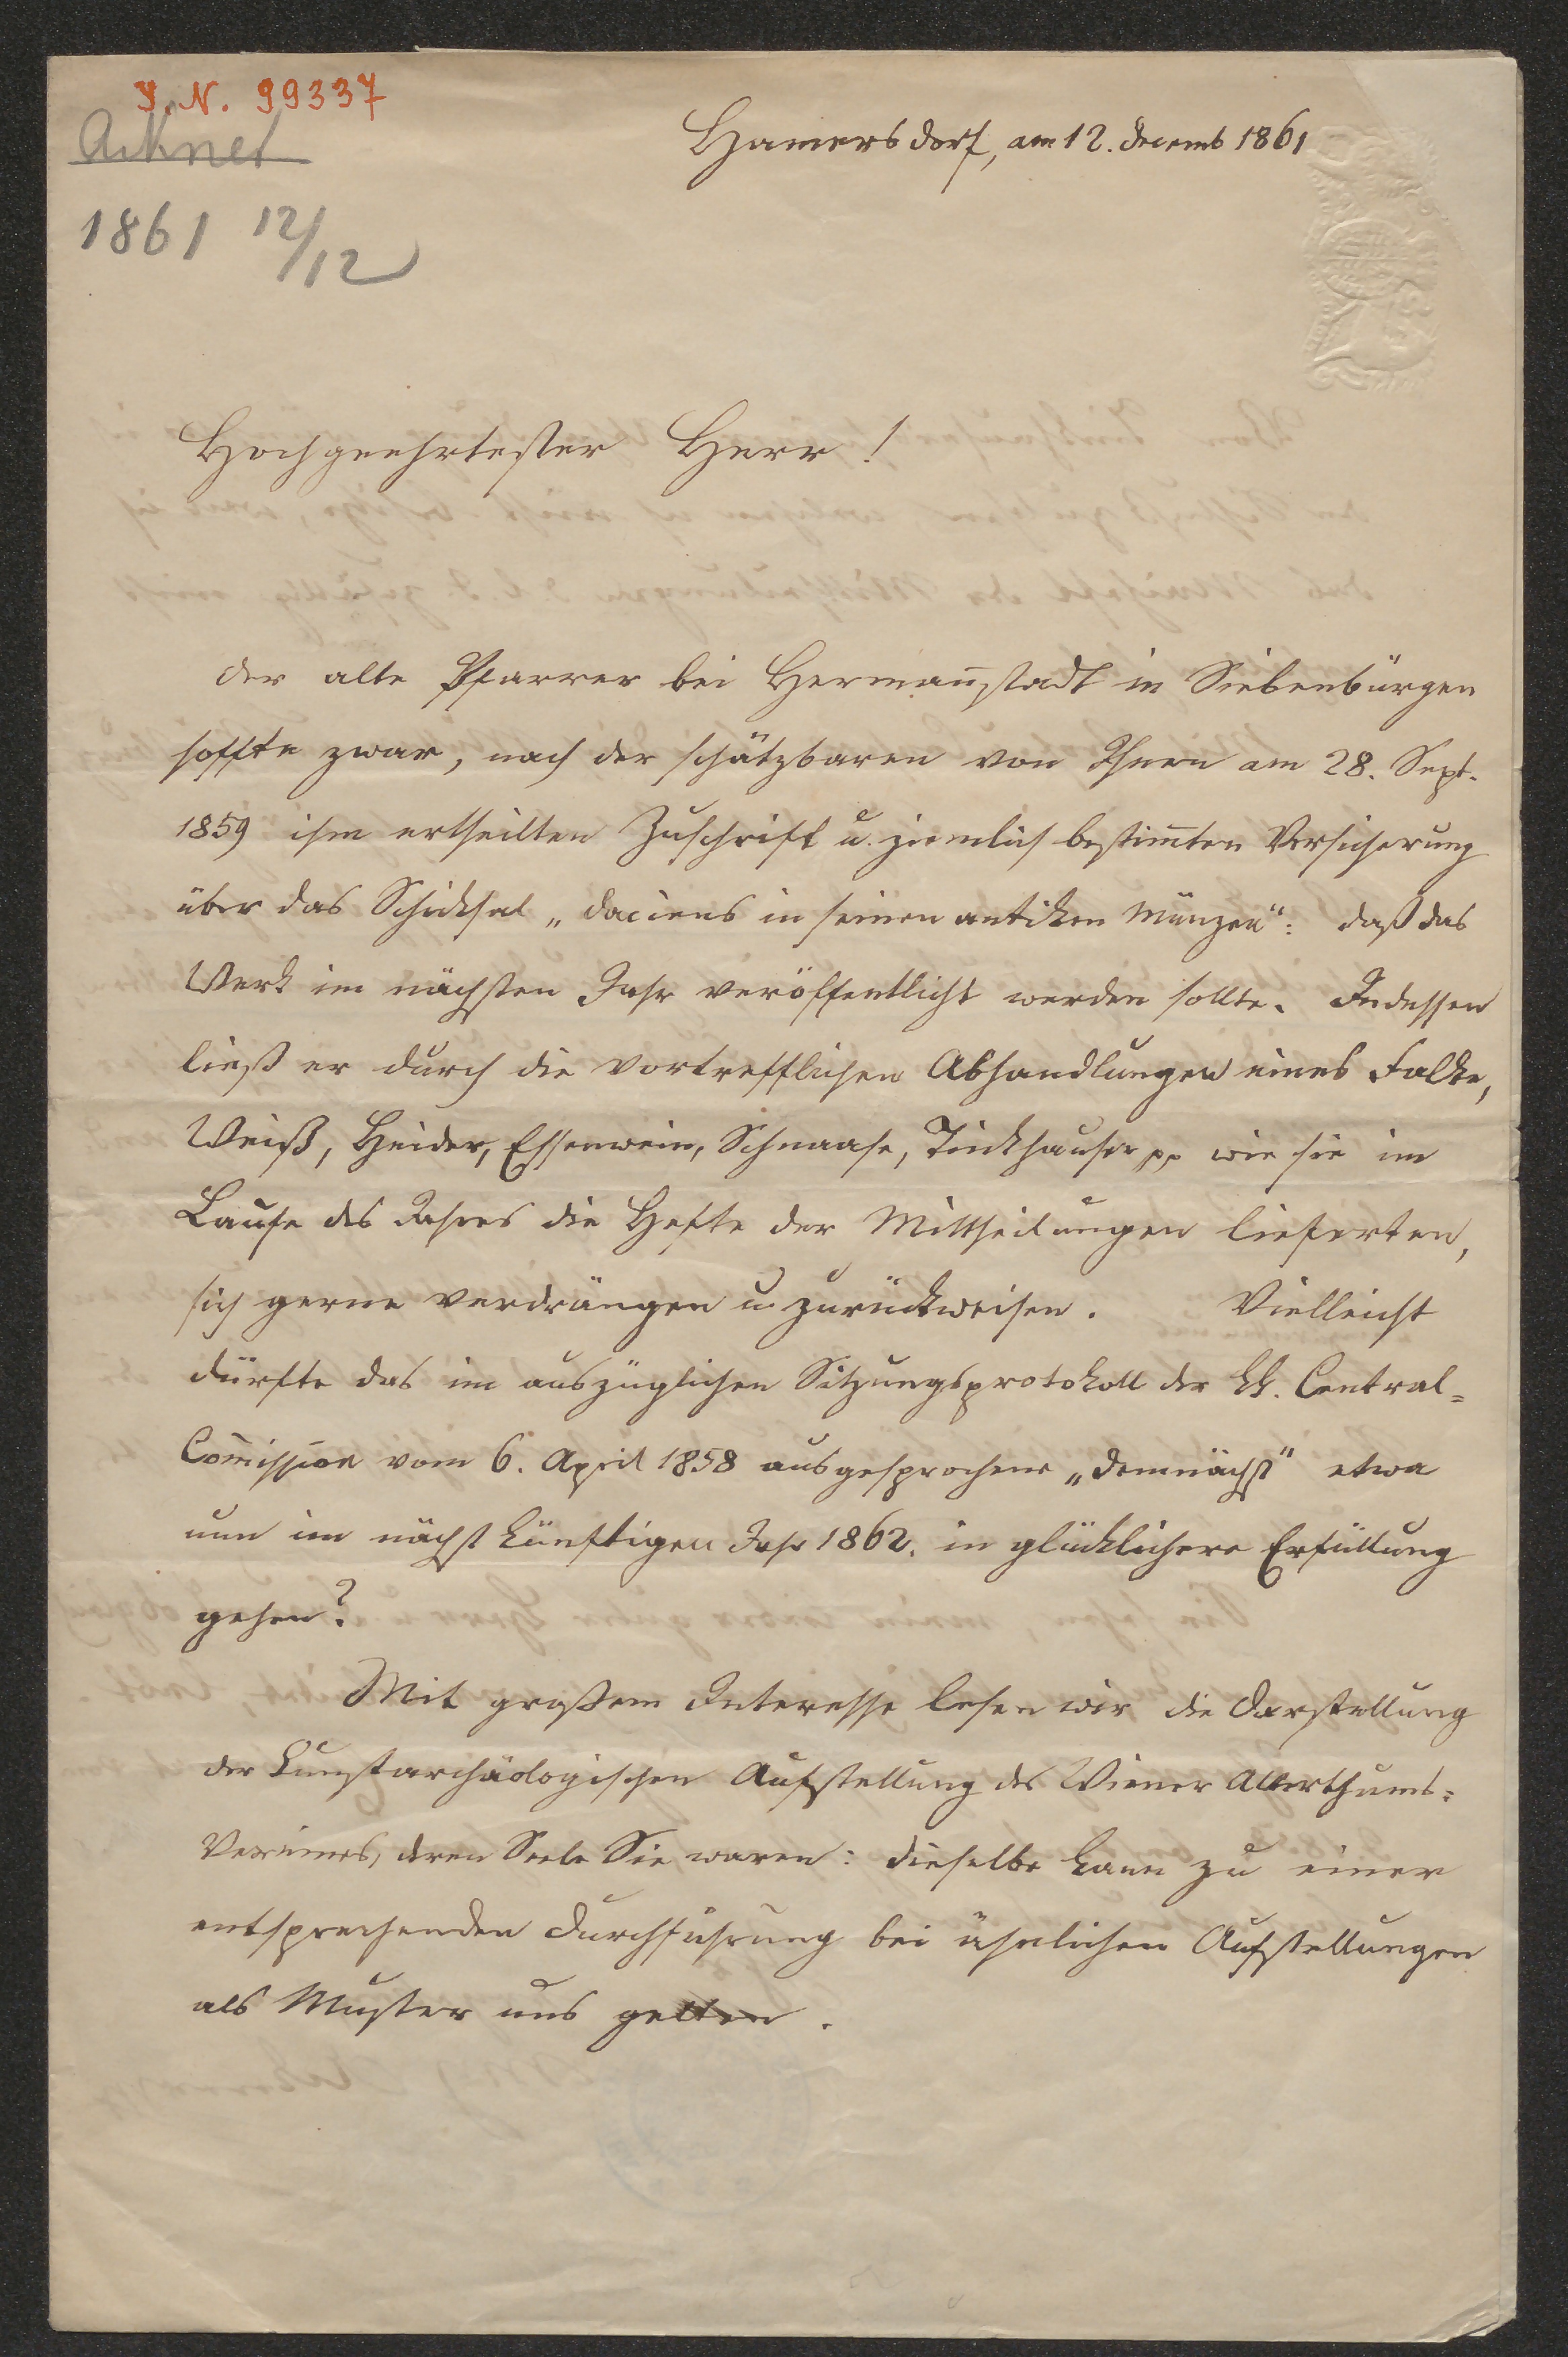 J. N. 99337
Ackner
1861 12/12
Hamersdorf, am 12. Decemb 1861
Hochgeehrtester Herr!
Der alte Pfarrer bei Hermañstadt in Siebenbürgen
hoffte zwar, nach der schätzbaren von Ihnen am 28. Sept.
1859 ihm ertheilten Zuschrift u. ziemlich bestim̃ten Versicherung
über das Schicksal „Daciens in seinen antiken Münzen": daß das
Werk im nächsten Jahr veröffentlicht werden sollte. Indessen
ließ er durch die vortrefflichen Abhandlungen eines Falke,
Weiß, Heider, Essenwein, Schnaase, Tinkhauser pp wie sie im
Laufe des Jahres die Hefte der Mittheilungen lieferten,
sich gerne verdrängen u. zurückweisen. Vielleicht
dürfte das im auszüglichen Sitzungsprotokoll der kk. Central=
Com̃ission vom 6. April 1858 ausgesprochene „demnächst" etwa
nun im nächst künftigen Jahr 1862. in glücklichere Erfüllung
gehen?
Mit großem Interesse lesen wir die Darstellung
der kunstarchäologischen Aufstellung des Wiener Alterthums=
Vereines, deren Seele Sie waren: dieselbe kann zu einer
entsprechenden Durchführung bei ähnlichen Aufstellungen
als Muster uns gelten.